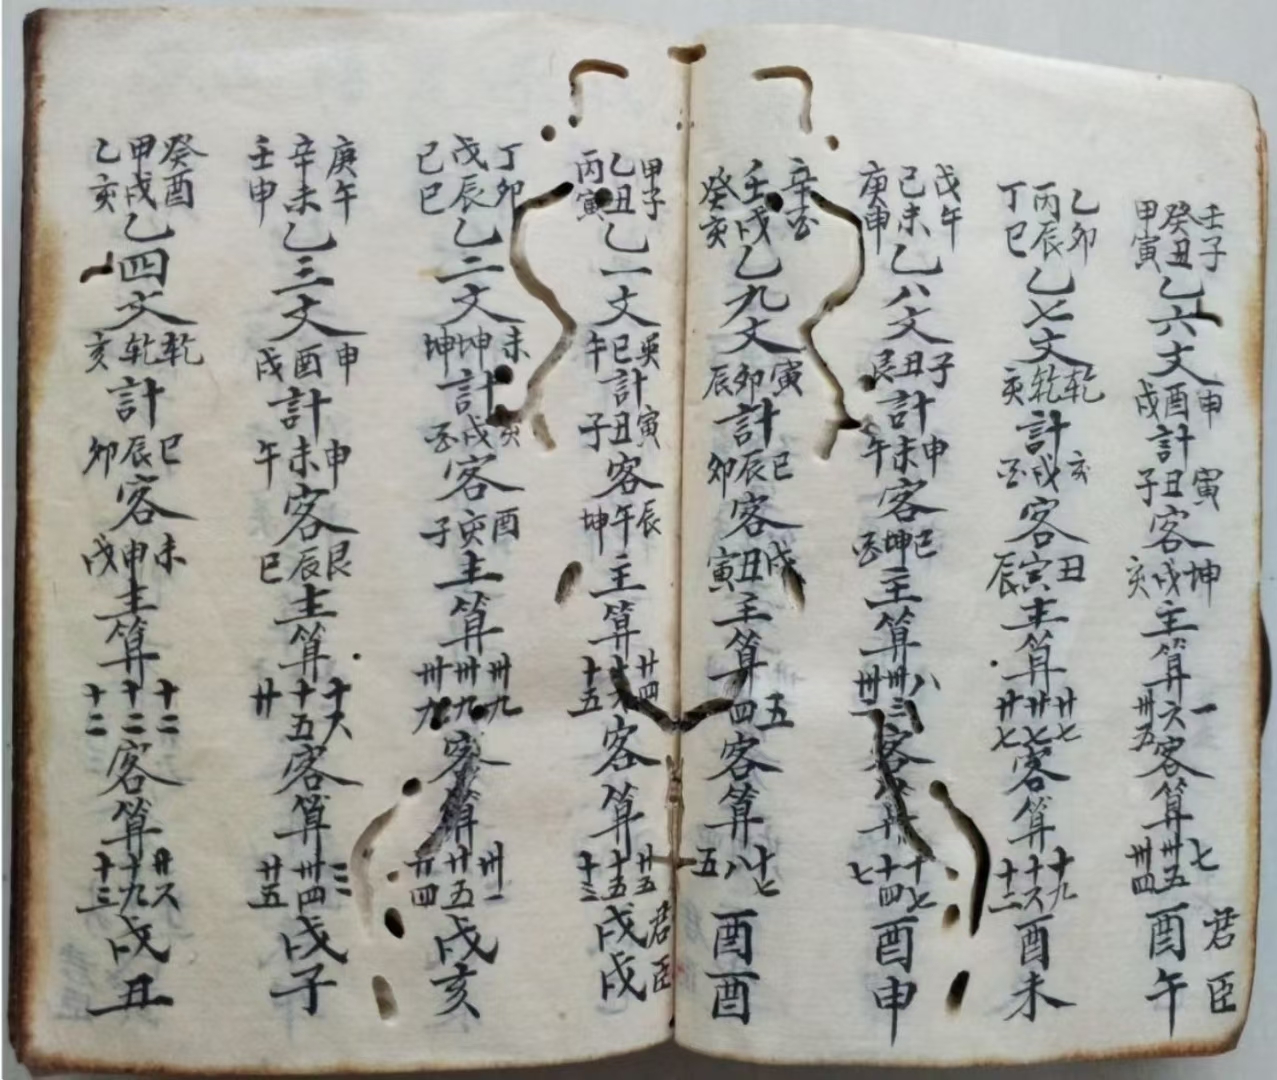 壬子 癸丑 甲寅 乙六文 申酉戌 計 寅丑子 客 坤戌亥 主算 一 六 卅五 客算 七 卅五 卅四 君臣 酉午
乙卯 丙辰 丁巳 乙七文 乾乾亥 計 亥戌酉 客 丑寅辰 主算 廿七 廿七 廿七 客算 十九 十六 十二 酉未
戊午 己未 庚申 乙八文 子丑艮 計 申未午 客 巳坤酉 主算 八 卅三 客算 十七 十四 七 酉申
辛酉 壬戌 癸亥 乙九文 寅卯辰 計 巳辰卯 客 戌丑寅 主算 五 四 客算 十七 八 五 酉酉
甲子 乙丑 丙寅 乙一文 巽巳午 計 寅丑子 客 辰午坤 主算 廿四 十六 十五 客算 廿五 十五 十三 君臣 戌戌
丁卯 戊辰 己巳 乙二文 未坤坤 計 亥戌酉 客 酉亥子 主算 卅九 卅九 卅九 客算 卅一 廿五 廿四 戌亥
庚午 辛未 壬申 乙三文 申酉戌 計 申未午 客 艮辰巳 主算 十六 十五 廿 客算 卅四 卅五 戌子
癸酉 甲戌 乙亥 乙四文 乾乾亥 計 巳辰卯 客 未申戌 主算 十二 十二 十二 客算 廿六 十九 十三 戌丑